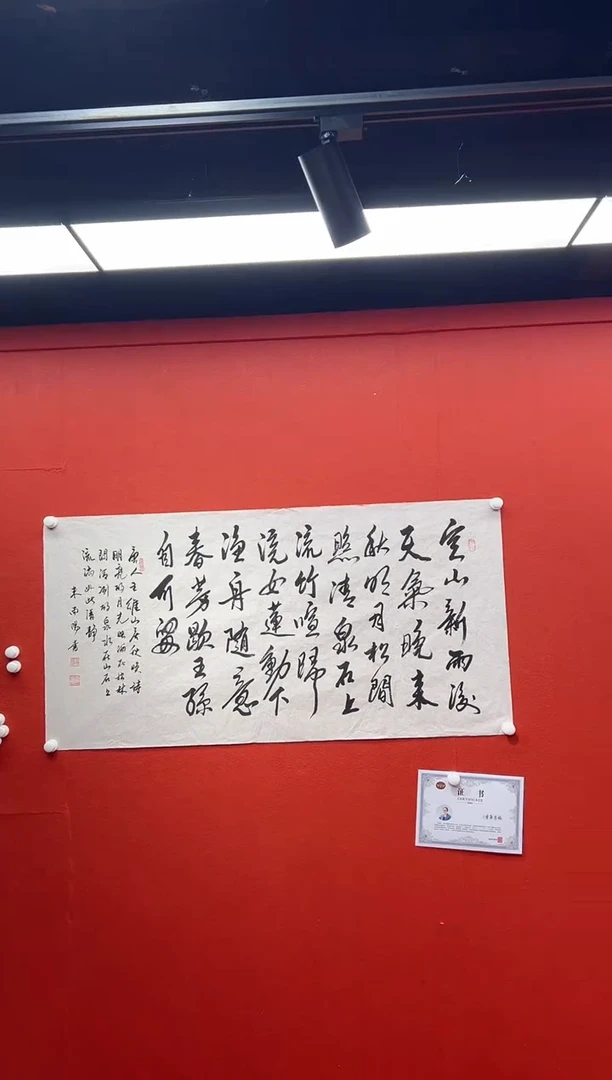 空山新雨後
天氣晚来
秋明月松間
照清泉石上
流竹喧歸
浣女蓮動下
漁舟随意
春芳歇王孫
自可留
唐人王維山居秋暝詩
明亮的月光映洒在松林
間清冽的泉水在山石上
流淌如此清静
书
证书